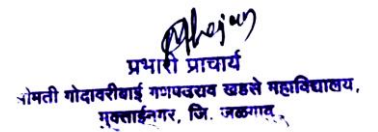 प्रभारी प्राचार्य
श्रीमती गोदावरीबाई गणपतराव खडसे महाविद्यालय,
मुक्ताईनगर, जि. जळगाव.